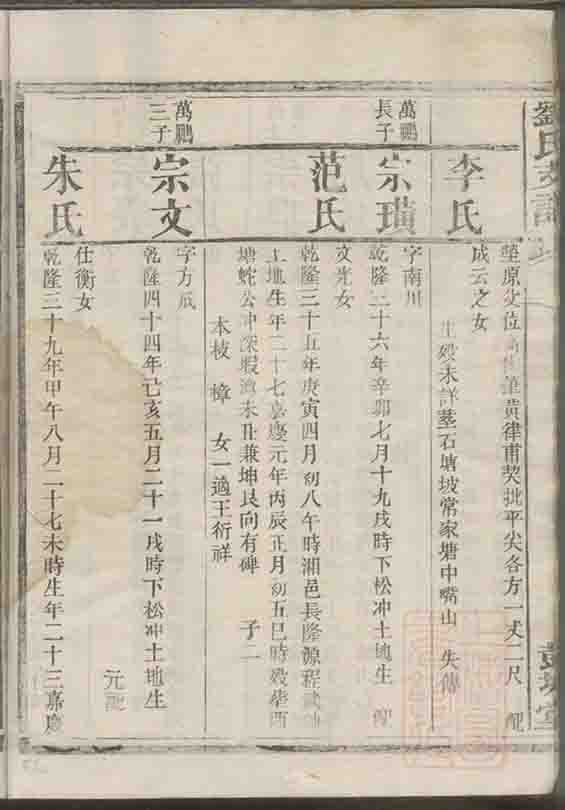 劉氏支譜
塋原文位 黃律甫契批平尖各方一丈二尺 配
李氏
成云之女
生歿未詳葬石塘坡常家塘中嘴山 失傳
萬鵬長子
宗璜
字南川
乾隆三十六年辛卯七月十九戌時下松冲土地生 配
范氏
文光女
乾隆三十五年庚寅四月初八午時湘邑長隆源程
土地生年二十七嘉慶元年丙辰正月初五巳時歿葬西
塘蛇公冲深 未丑兼坤艮向有碑 子二
本枝 樟 女一適王衍祥
萬鵬三子
宗文
字方成
乾隆四十四年己亥五月二十一戌時下松冲土地生
元配
朱氏
仕衡女
乾隆三十九年甲午八月二十七未時生年二十三嘉慶